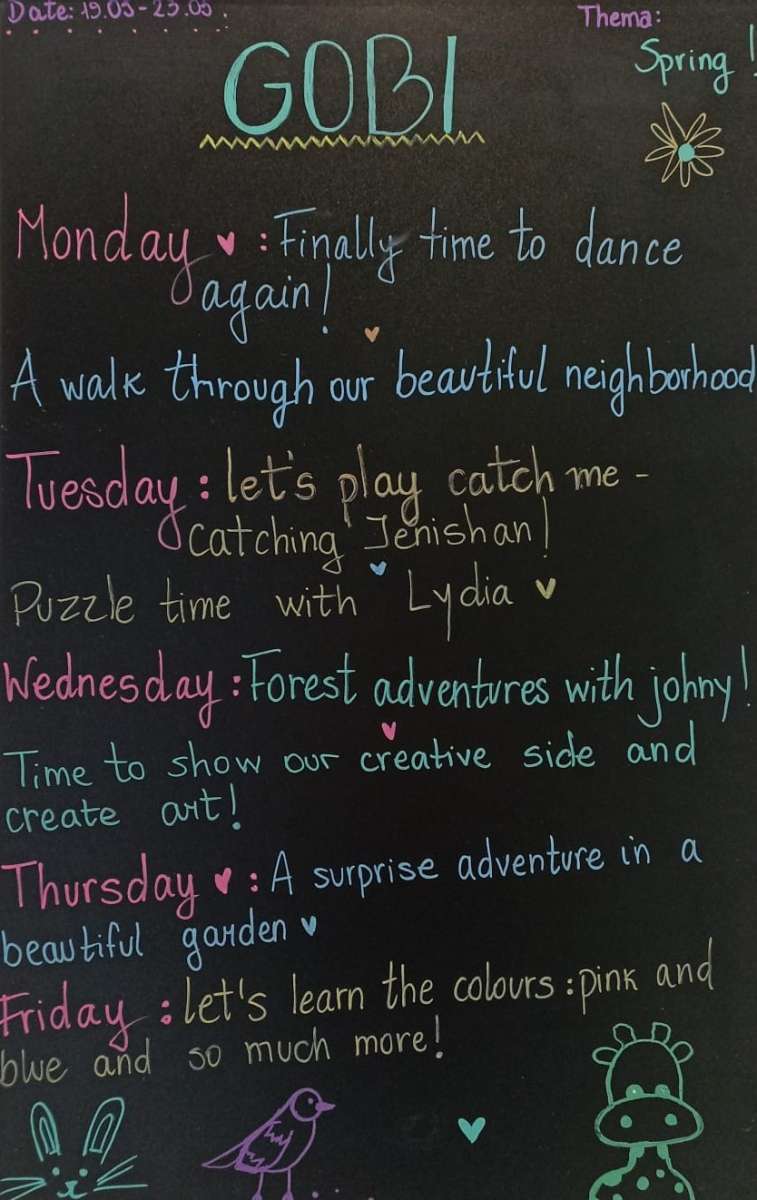 Date: 19.05-23.05.
Thema:
Spring!
GOBI
Monday ♥ : Finally time to dance
again!
A walk through our beautiful neighborhood
Tuesday : let's play catch me -
catching Jenishan!
Puzzle time with Lydia ♥
Wednesday : Forest adventures with johny!
Time to show our creative side and
create art!
Thursday ♥ : A surprise adventure in a
beautiful garden ♥
Friday : let's learn the colours : pink and
blue and so much more!